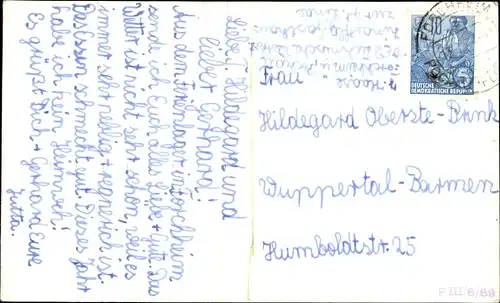 Liebe T. Hildegard und
lieber Gerhard!
Aus dem Ferienlager in Forchheim
sende ich Euch alles Liebe + Gute. Das
Wetter ist nicht sehr schön, weil es
immer sehr neblig + regnerisch ist.
Das Essen schmeckt gut. Dieses Jahr
habe ich kein Heimweh!
Es grüßt Dich + Gerhard Eure
Jutta.
Frau
Hildegard Oberste-Brink
Wuppertal-Barmen
Humboldtstr. 25
DEUTSCHE
DEMOKRATISCHE REPUBLIK
F III 6/88